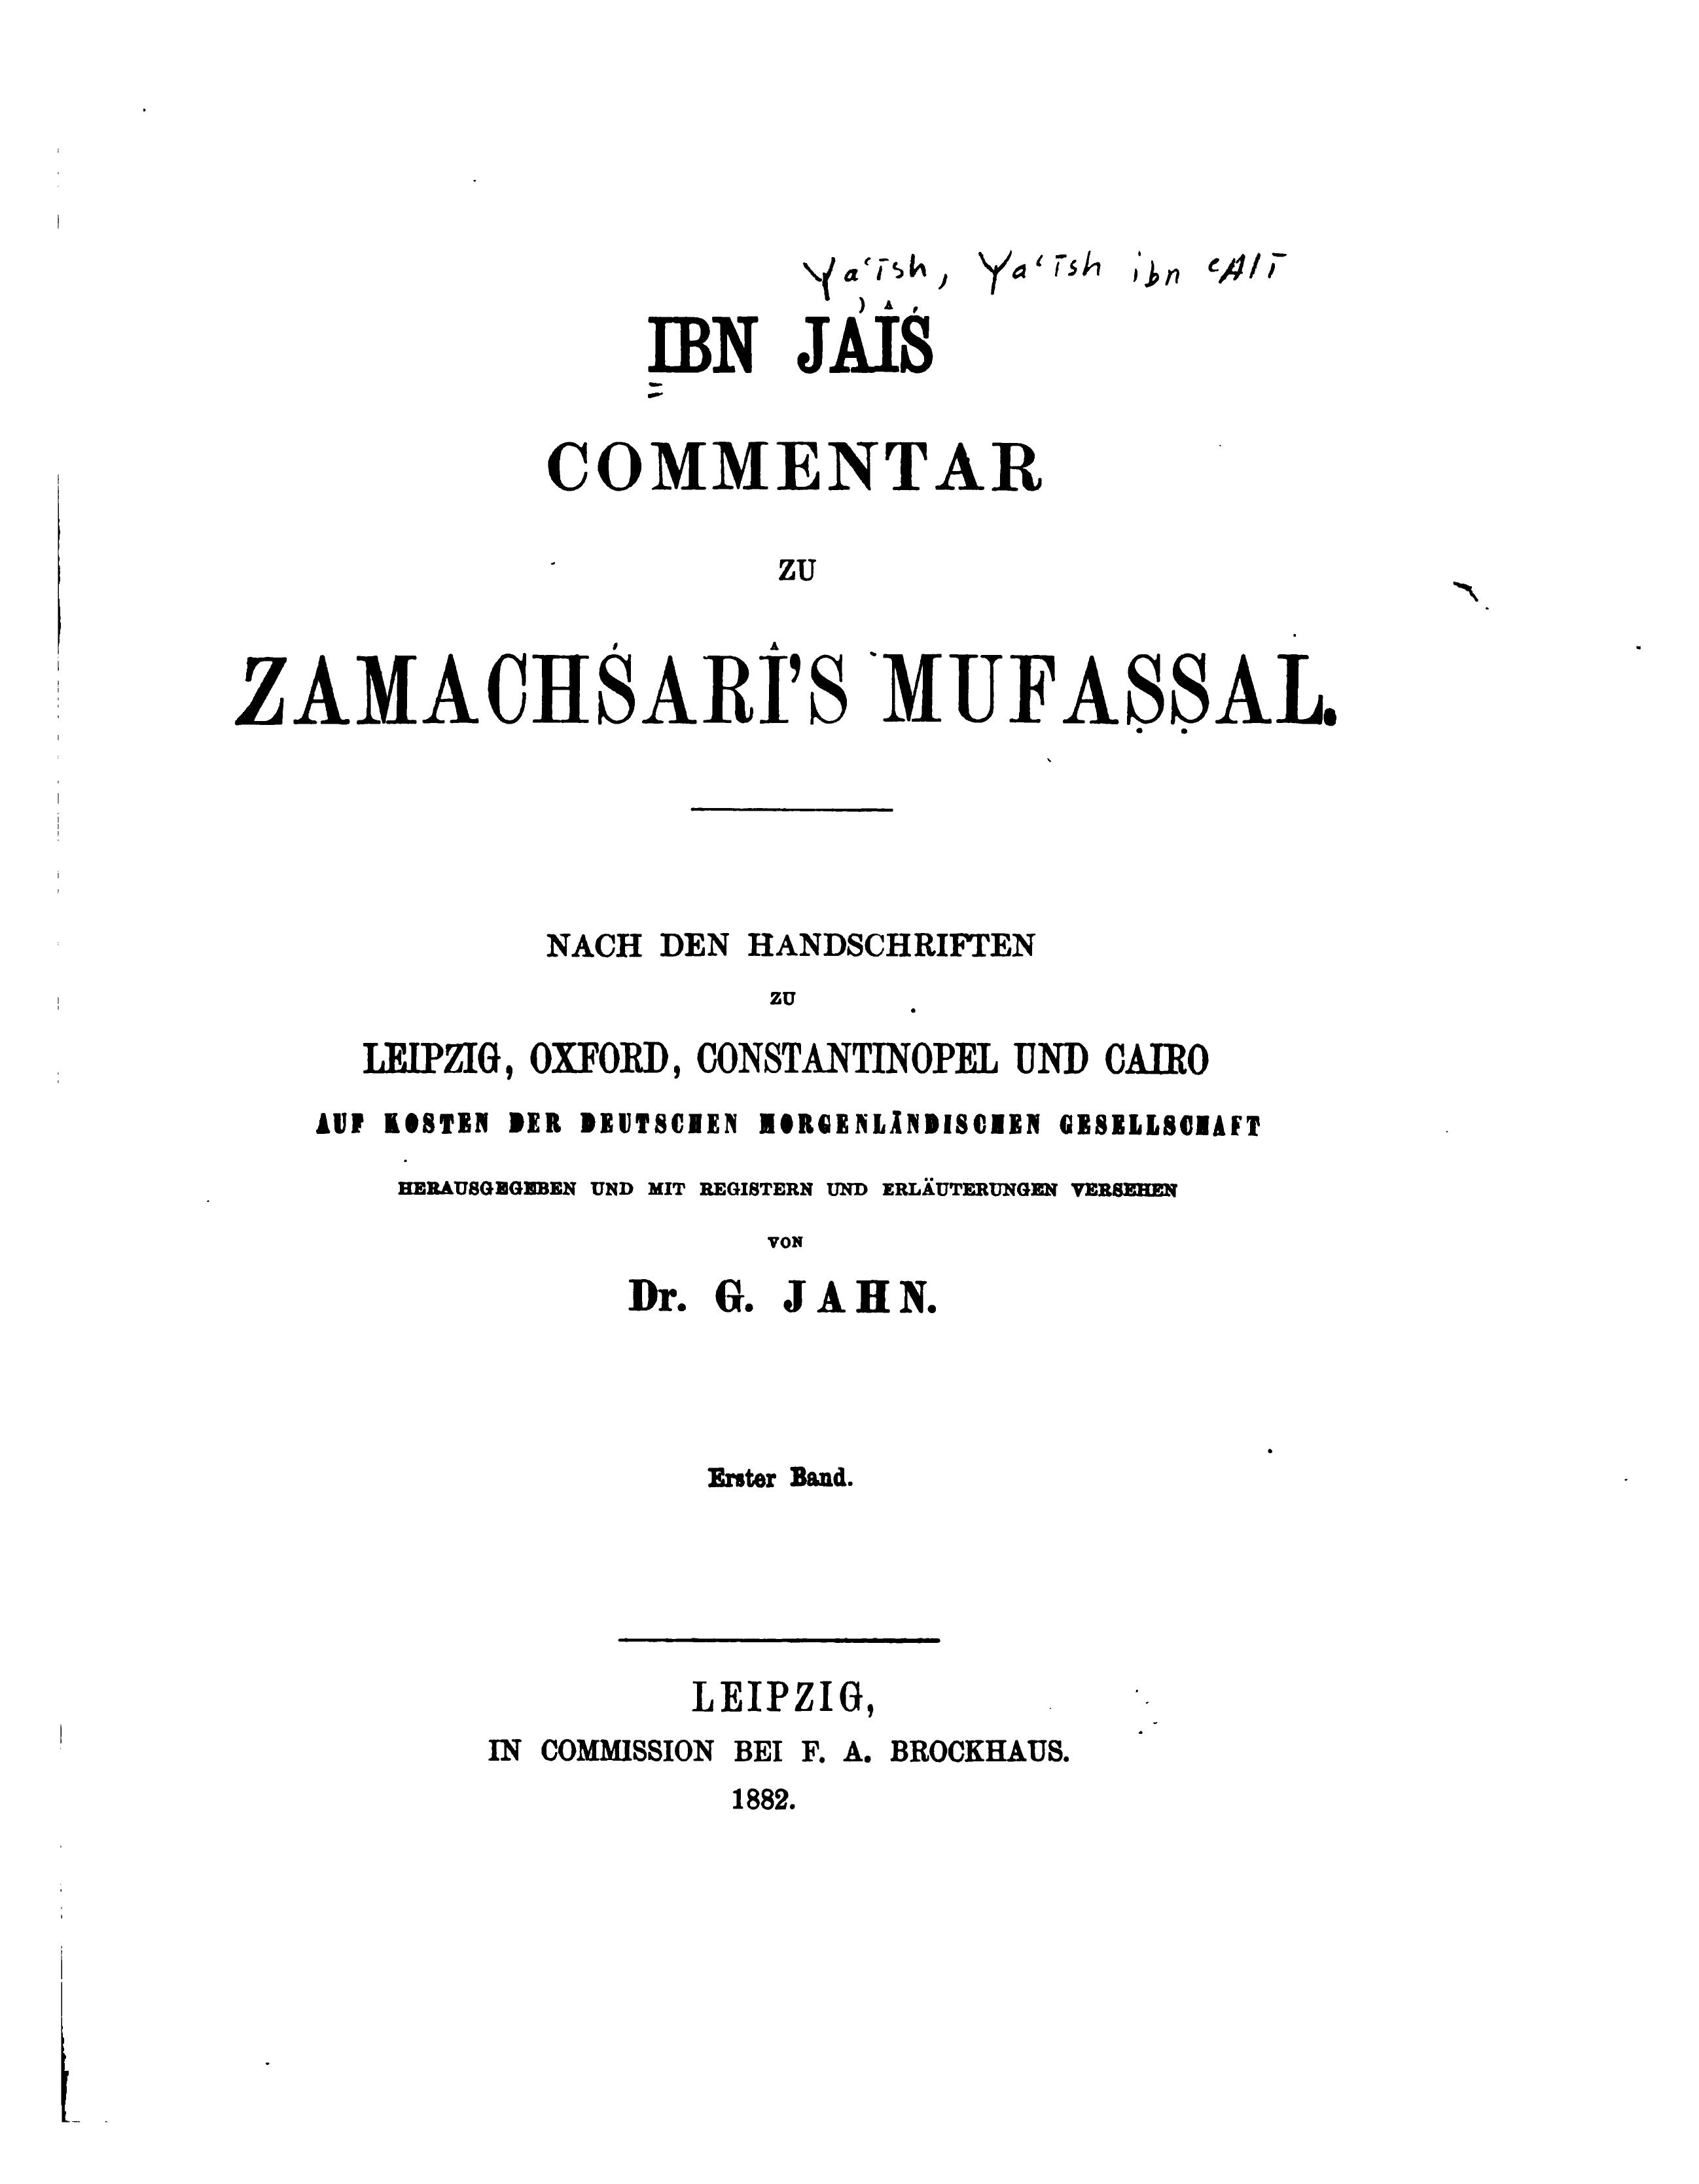 Ya‘īsh, Ya‘īsh ibn ‘Alī
IBN JAʾÎŚ
COMMENTAR
ZU
ZAMACHŚARÎ'S MUFAṢṢAL.
NACH DEN HANDSCHRIFTEN
ZU
LEIPZIG, OXFORD, CONSTANTINOPEL UND CAIRO
AUF KOSTEN DER DEUTSCHEN MORGENLÄNDISCHEN GESELLSCHAFT
HERAUSGEGEBEN UND MIT REGISTERN UND ERLÄUTERUNGEN VERSEHEN
VON
Dr. G. JAHN.
Erster Band.
LEIPZIG,
IN COMMISSION BEI F. A. BROCKHAUS.
1882.